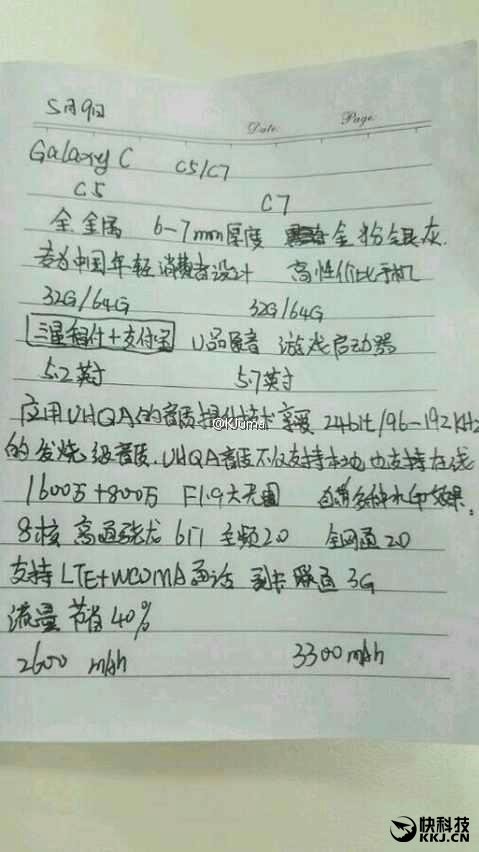 5月9日
Date. Page.
Galaxy C C5/C7
C5 C7
全金属 6-7mm厚度 金粉金银灰.
专为中国年轻消费者设计 高性价比手机
32G/64G 32G/64G
三星智付+支付宝 U品臻音 游戏启动器
5.2英寸 5.7英寸
@KJuma
应用UHQA的音质提升技术 享受 24bit/96-192KHz
的发烧级音质.UHQA音质不仅支持本地也支持在线
1600万+800万 F1.9大光圈 多种水印效果.
8核 高通骁龙 617 主频2.0 全网通2.0
支持LTE+WCDMA通话 副卡联通3G
流量节省40%
2600 mAh 3300mAh
快科技
KKJ.CN